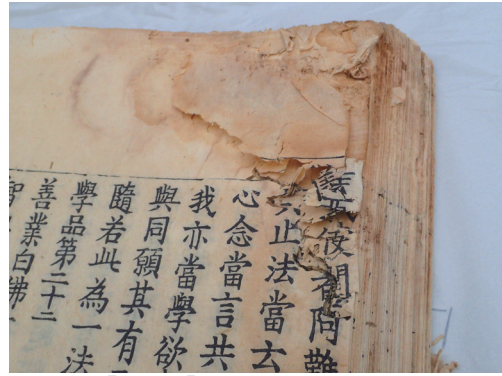 阿難
止法當云
心念當言共
我亦當學欲
與同願其有
隨若此為一法
學品第二十二
善業白佛